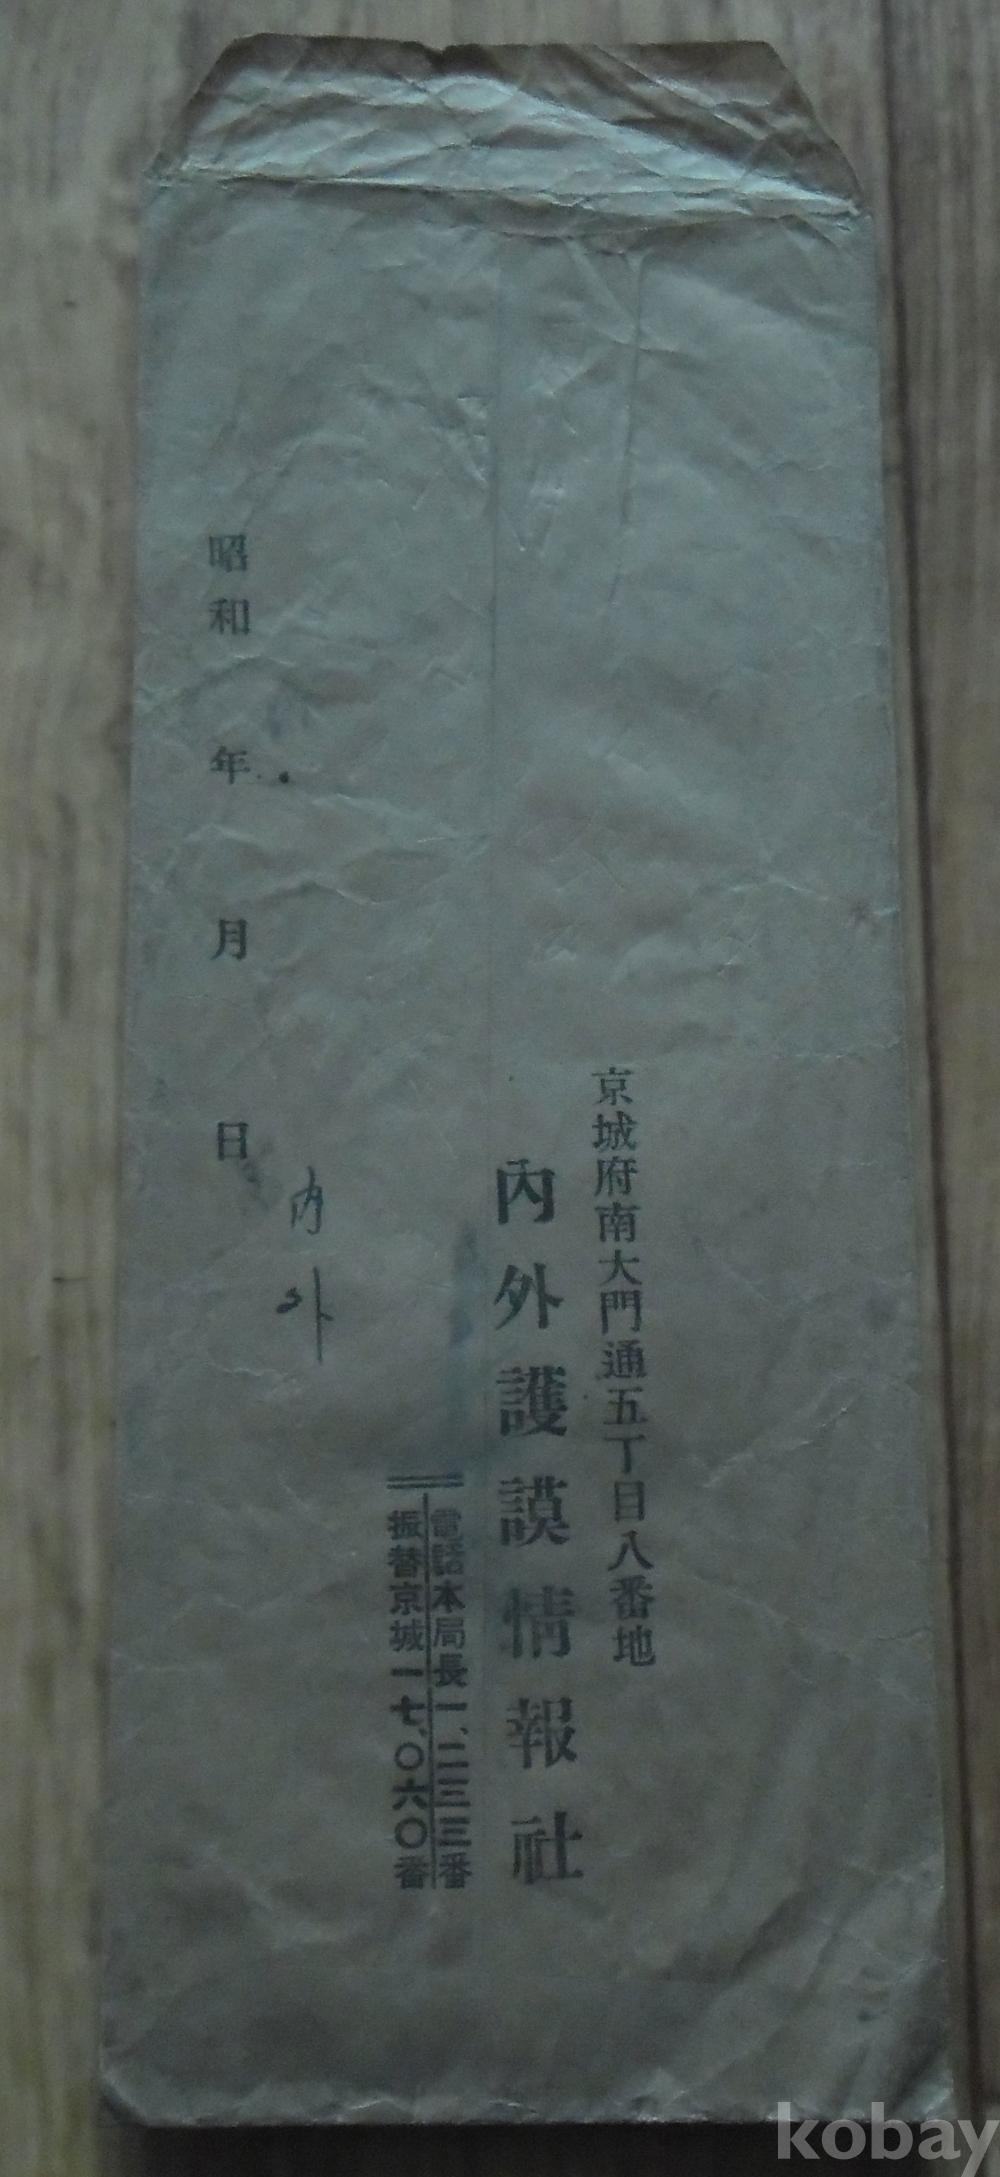 京城府南大門通五丁目八番地
內外護謨情報社
電話本局長一、二三三番
振替京城一七、〇六〇番
内外
昭和 年 月 日
kobay